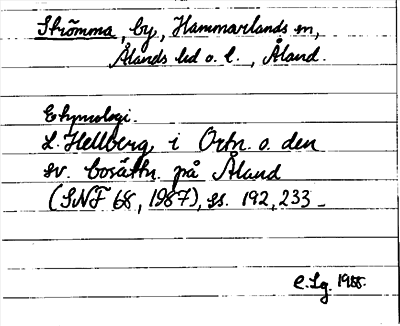 Strömma, by, Hammarlands sn,
Ålands hd o. l., Åland.
Etymologi.
L. Hellberg, i Ortn. o. den
sv. bosättn. på Åland
(SNF 68, 1987), ss. 192, 233 -
C. Lg. 1988.